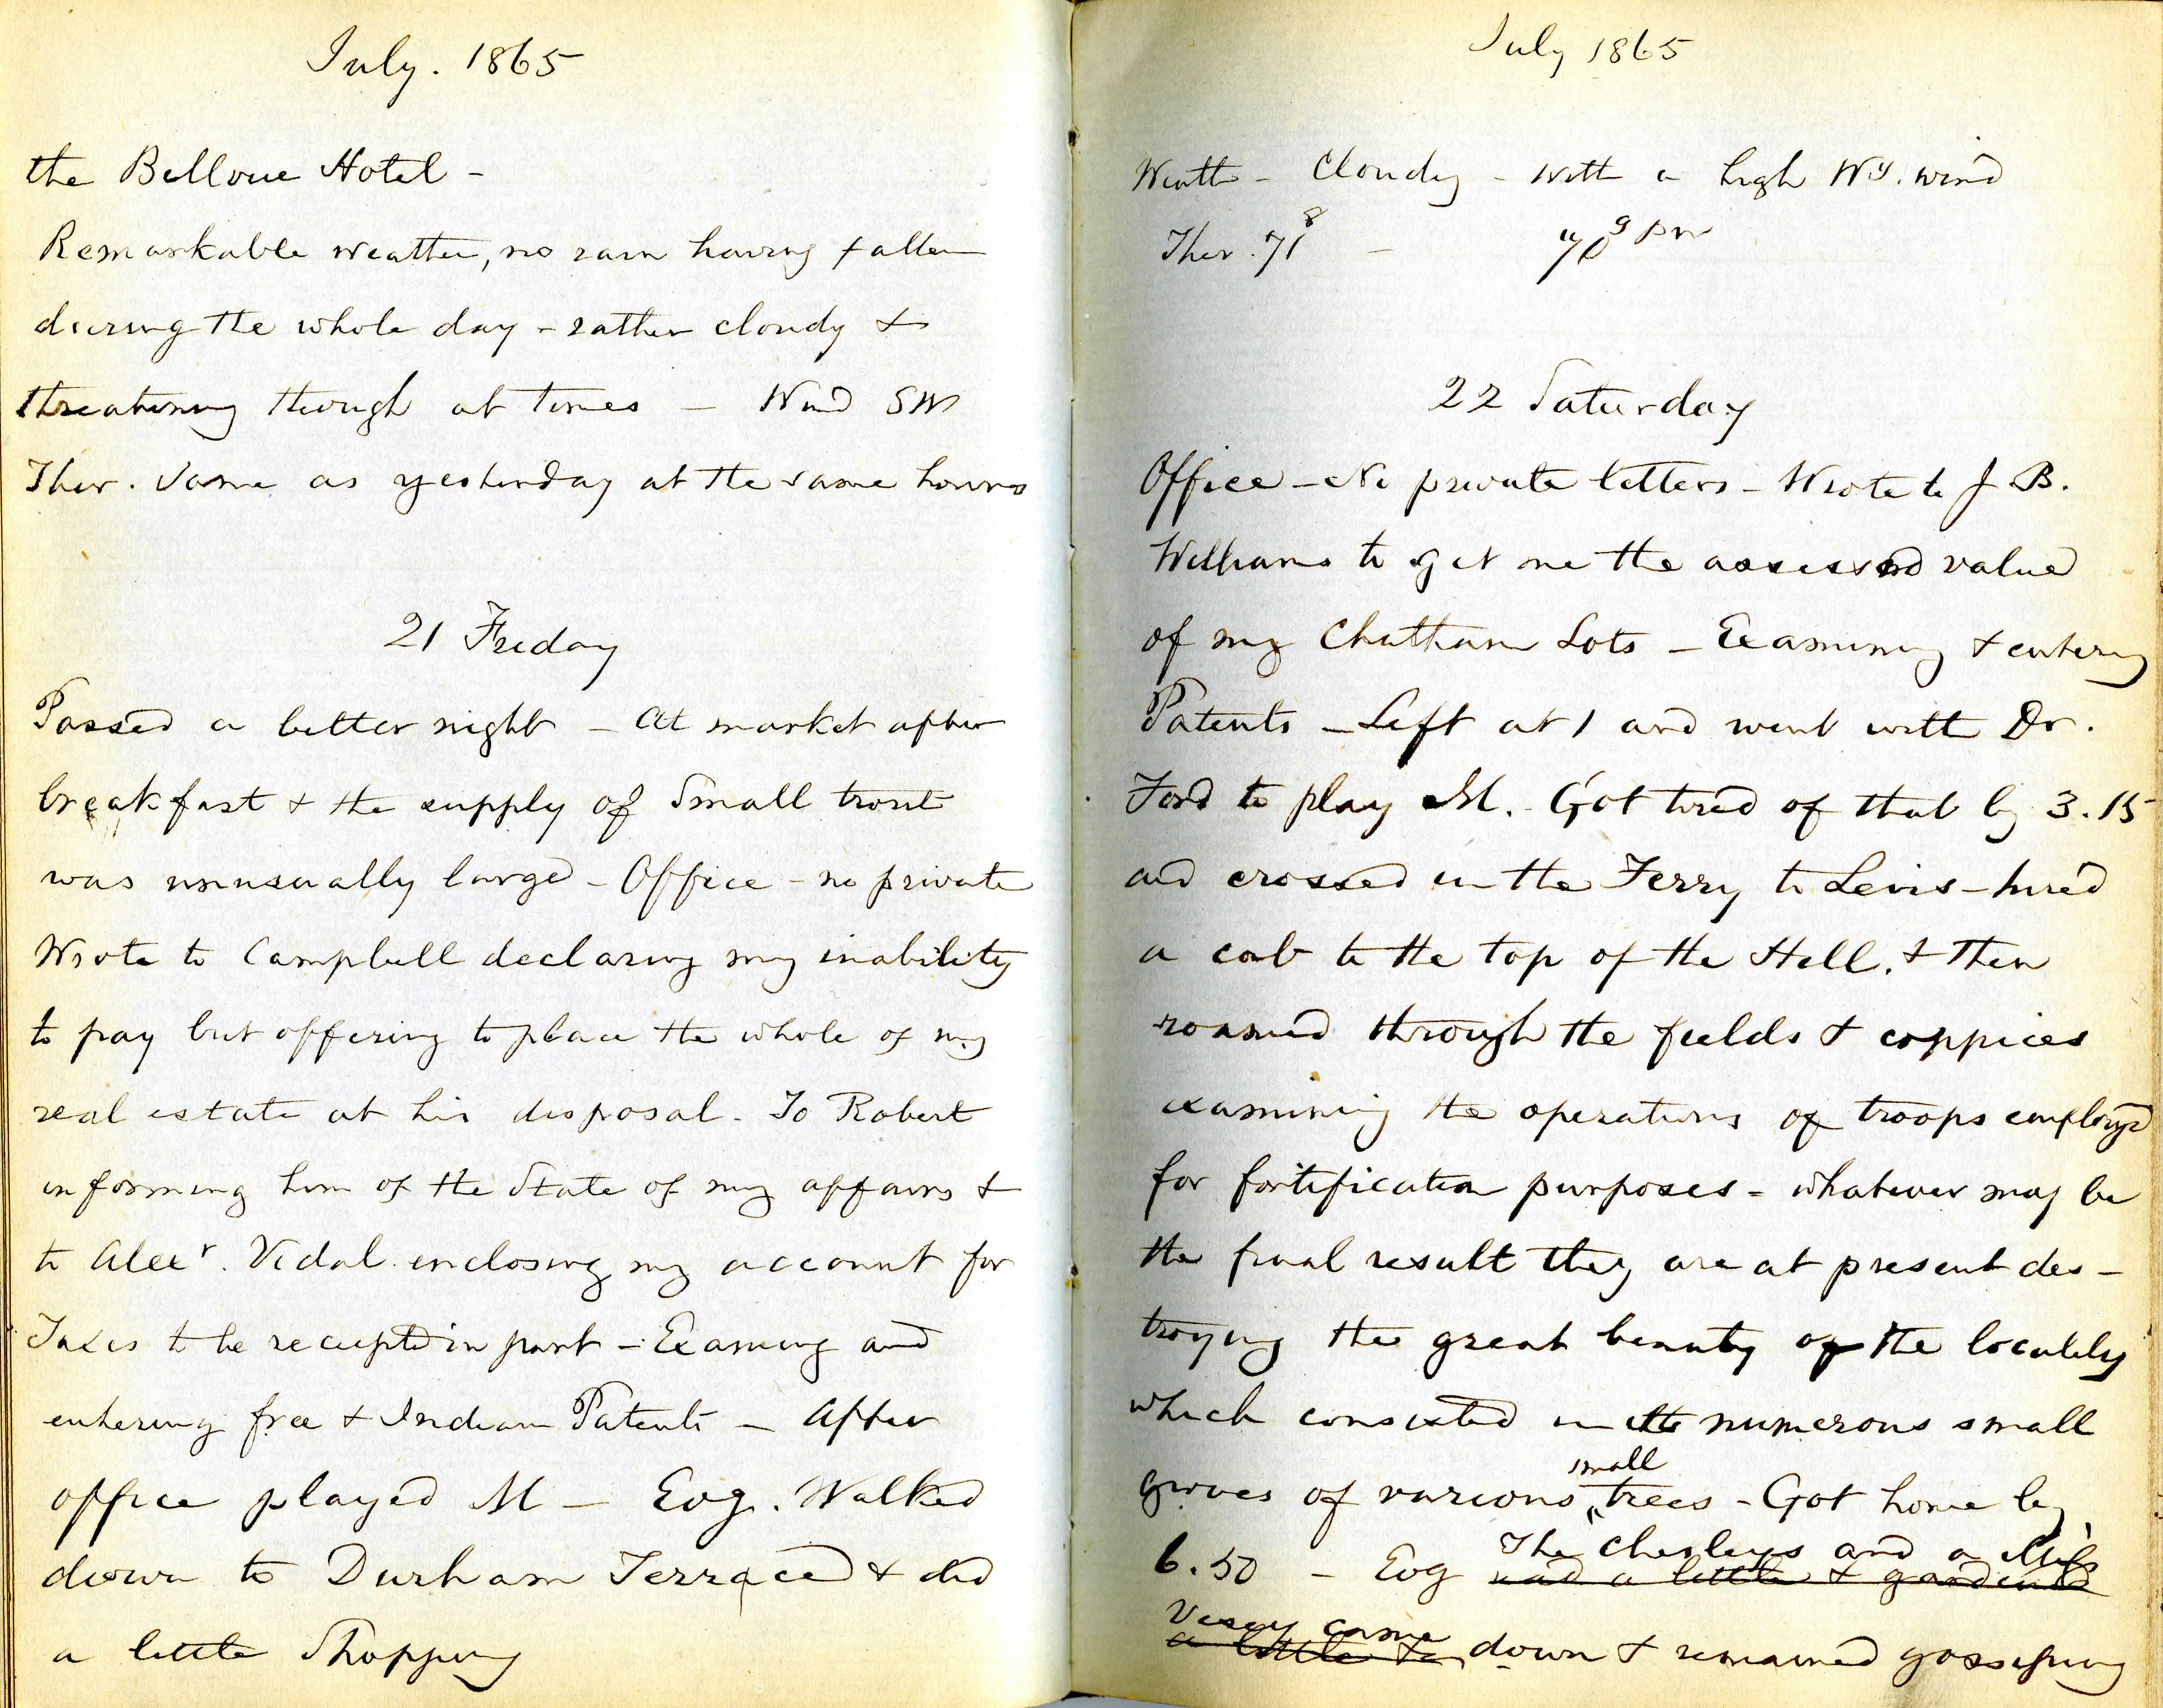 July. 1865
the Bellvue Hotel -
Remarkable weather, no rain having fallen
during the whole day - rather cloudy &
threatening though at times - Wind SW
Ther. Same as yesterday at the same hours
21 Friday
Passed a better night - At market after
breakfast & the supply of Small trout
was unusually large - Office - no private
Wrote to Campbell declaring my inability
to pay but offering to place the whole of my
real estate at his disposal - To Robert
informing him of the State of my affairs &
to Alexr. Vidal enclosing my account for
Taxes to be receipted in part - Examing and
entering free & Indian Patents - After
office played M - Evg. Walked
down to Durham Terrace & did
a little Shopping
July 1865
Weath - Cloudy - with a high Wy. wind
Ther. 71 8 - 70 9 pm
22 Saturday
Office - No private letters - Wrote to J B.
Williams to get me the assessed value
of my Chatham Lots - Examining & entering
Patents - Left at 1 and went with Dr.
Ford to play M. - Got tired of that by 3.15
and crossed in the Ferry to Levis - hired
a cab to the top of the Hill. & then
roamed through the fields & coppices
examining the operations of troops employd
for fortification purposes - whatever may be
the final result they are at present des-
troying the great beauty of the locality
which consisted in its numerous small
groves of various small trees - Got home by
6.50 - Evg The Chesleys and a Miss
had a little & gardened
Vesey came
a little to down & remained gossiping